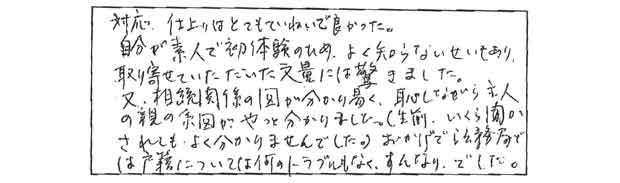 対応、仕上りはとてもていねいで良かった。
自分が素人で初体験のため、よく知らないせいもあり、
取り寄せていただいた文量には驚きました。
又、相続関係の図が分かり易く、恥しながら主人
の親の系図が、やっと分かりました。(生前、いくら聞か
されても、よく分かりませんでした。)おかげで法務局で
は戸籍については何のトラブルもなく、すんなり、でした。